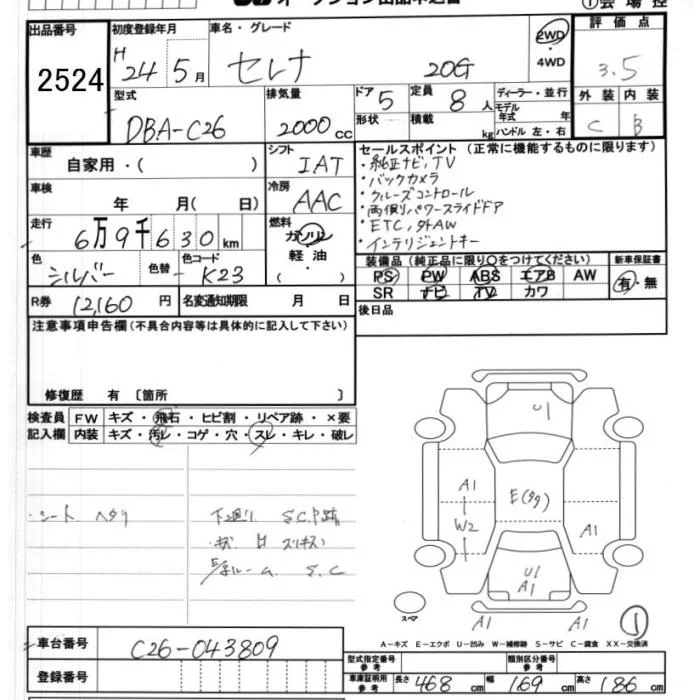 オークション出品申込書
①会場控
出品番号
2524
初度登録年月
H 24 5月
車名・グレード
セレナ 20G
2WD・4WD
評価点
3.5
型式
DBA-C26
排気量
2000cc
ドア 5
形状
定員 8人
積載 kg
ディーラー・並行
モデル年式 年
ハンドル 左・右
外装 内装
C B
車歴
自家用・( )
シフト
IAT
セールスポイント (正常に機能するものに限ります)
・純正ナビ,TV
・バックカメラ
・クルーズコントロール
・両側パワースライドドア
・ETC,外AW
・インテリジェントキー
車検
年 月( 日)
冷房
AAC
走行
6万9千630km
燃料
ガソリン
軽油
( )
色
シルバー
色替
色コード
K23
装備品 (純正品に限り○をつけてください)
新車保証書
PS PW ABS エアB AW
SR ナビ TV カワ
有・無
R券 12,160円
名変通知期限 月 日
後日品
注意事項申告欄(不具合内容等は具体的に記入して下さい)
修復歴 有 〔箇所 〕
検査員記入欄
FW キズ・飛石・ヒビ割・リペア跡・×要
内装 キズ・汚レ・コゲ・穴・スレ・キレ・破レ
・シート ヘタリ
下回り S.C.P跡
S.C
U1
A1
W2
A1
U1
A1
A1
A1
スペア
①
A-キズ E-エクボ U-凹み W-補修跡 S-サビ C-腐食 XX-交換済
車台番号
C26-043809
登録番号
型式指定番号 参考
類別区分番号 参考
車庫証明用 参考
長さ 468cm 幅 169cm 高さ 186cm